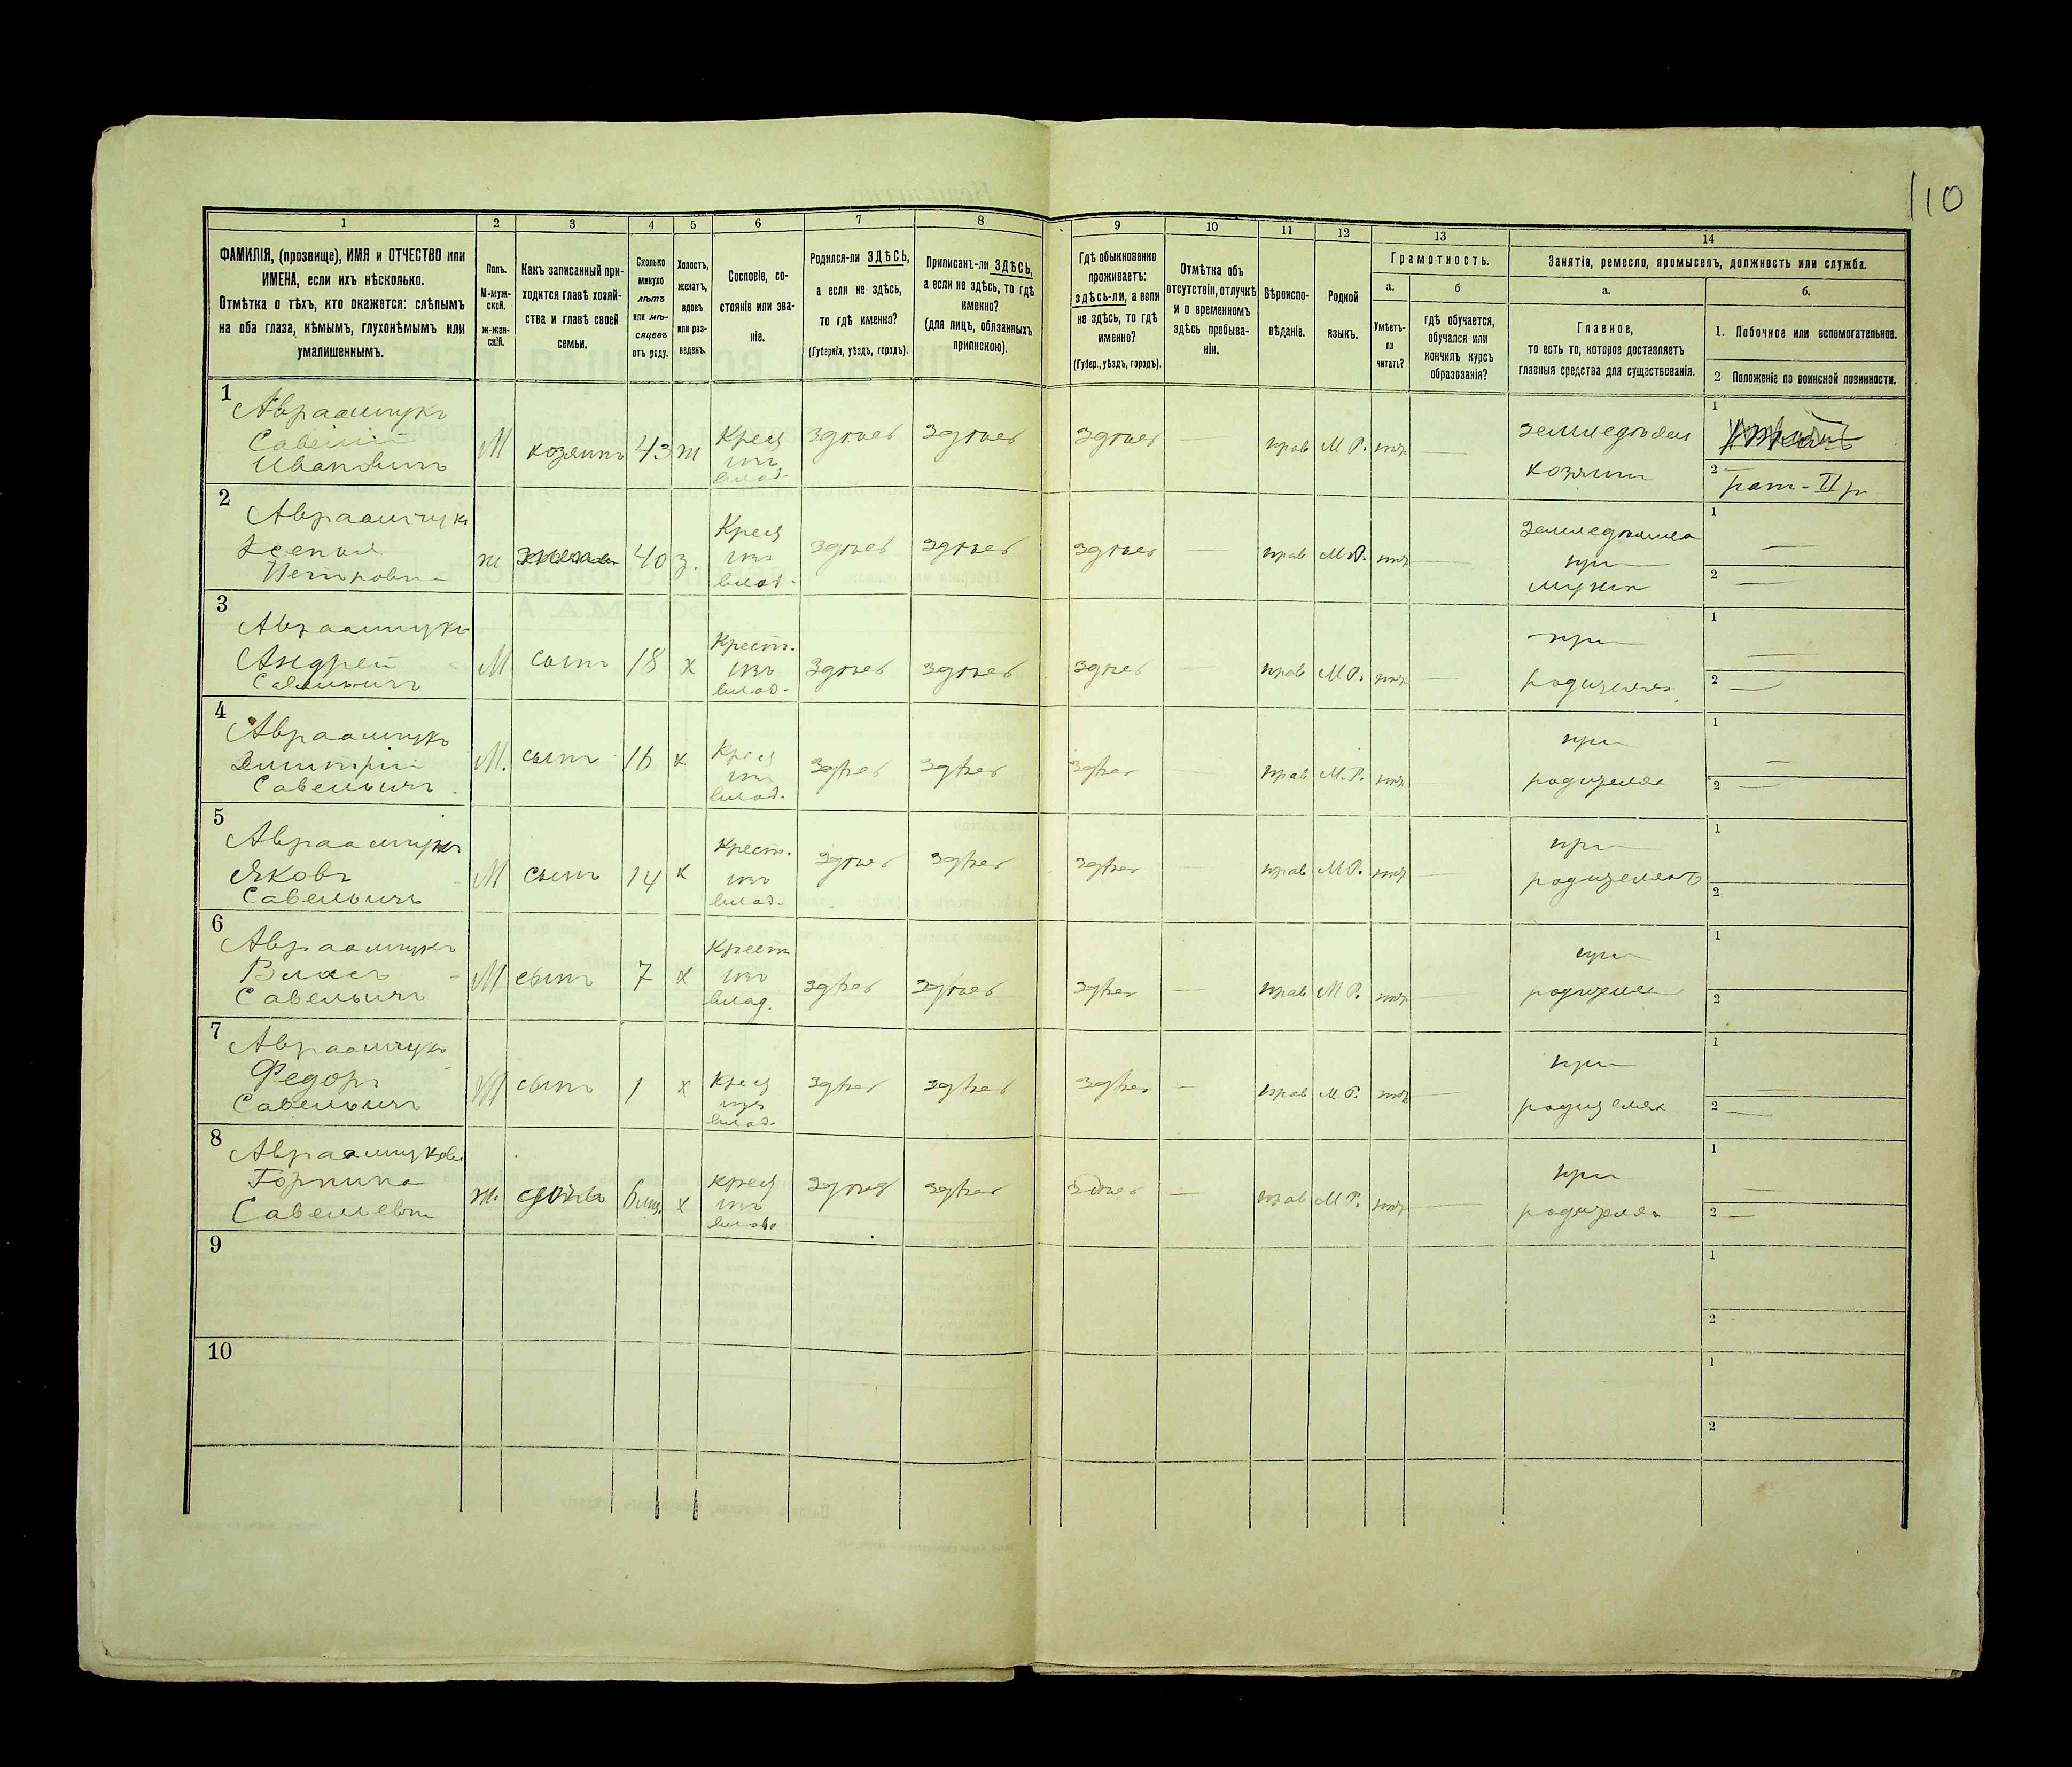 110
1 2 3 4 5 6 7 8 9 10 11 12 13 14
ФАМИЛІЯ, (прозвище), ИМЯ и ОТЧЕСТВО или
ИМЕНА, если ихъ нѣсколько.
Отмѣтка о тѣхъ, кто окажется: слѣпымъ
на оба глаза, нѣмымъ, глухонѣмымъ или
умалишеннымъ.
Полъ.
М-муж-
ской.
ж-жен-
скій.
Какъ записанный при-
ходится главѣ хозяй-
ства и главѣ своей
семьи.
Сколько
минуло
лѣтъ
или мѣ-
сяцевъ
отъ роду.
Холостъ,
женатъ,
вдовъ
или раз-
веденъ.
Сословіе, со-
стояніе или зва-
ніе.
Родился-ли ЗДѢСЬ,
а если не здѣсь,
то гдѣ именно?
(Губернія, уѣздъ, городъ).
Приписанъ-ли ЗДѢСЬ,
а если не здѣсь, то гдѣ
именно?
(для лицъ, обязанныхъ
припискою).
Гдѣ обыкновенно
проживаетъ:
здѣсь-ли, а если
не здѣсь, то гдѣ
именно?
(Губер., уѣздъ, городъ).
Отмѣтка объ
отсутствіи, отлучкѣ
и о временномъ
здѣсь пребыва-
ніи.
Вѣроиспо-
вѣданіе.
Родной
языкъ.
Грамотность.
а.
Умѣетъ-
ли
читать?
б
гдѣ обучается,
обучался или
кончилъ курсъ
образозанія?
Занятіе, ремесло, промыселъ, должность или служба.
а.
Главное,
то есть то, которое доставляетъ
главныя средства для существованія.
б.
1. Побочное или вспомогательное.
2 Положеніе по воинской повинности.
1
Авраамчукъ
Савелій
Ивановичъ
М
хозяинъ
43
ж
Крест
изъ
влад.
здѣсь
здѣсь
здѣсь
—
прав
М Р.
нѣтъ
—
земледѣлец
хозяинъ
1
2 рат-II р
2
Авраамчукъ
Ксенія
Петровна
ж
жена
40
з.
Крест
изъ
влад.
здѣсь
здѣсь
здѣсь
—
прав
М.Р.
нѣтъ
—
при
мужѣ
1 —
2 —
3
Авраамчукъ
Андрей
Савельичъ
М
сынъ
18
х
Крест.
изъ
влад.
здѣсь
здѣсь
здѣсь
—
прав
М Р.
нѣтъ
—
при
родителях
1 —
2 —
4
Авраамчукъ
Димитрій
Савельичъ
М.
сынъ
16
х
Крест
изъ
влад.
здѣсь
здѣсь
здѣсь
—
прав
М.Р.
нѣтъ
при
родителях
1 —
2 —
5
Авраамчукъ
Яковъ
Савельичъ
М
сынъ
14
х
Крест.
изъ
влад.
здѣсь
здѣсь
здѣсь
—
прав
М Р.
нѣтъ
—
при
родителяхъ
1
2
6
Авраамчукъ
Власъ
Савельичъ
М
сынъ
7
х
Крест
изъ
влад.
здѣсь
здѣсь
здѣсь
—
прав
М Р.
нѣтъ
—
при
родителях
1
2
7
Авраамчукъ
Федоръ
Савельичъ
М
сынъ
1
х
Крест
изъ
влад.
здѣсь
здѣсь
здѣсь
—
прав
М Р.
нѣтъ
при
родителях
1 —
2 —
8
Авраамчукова
Горпина
Савельевна
ж.
дочь
6 мѣс.
х
Крест
изъ
влад
здѣсь
здѣсь
здѣсь
—
прав
М Р.
нѣтъ
—
при
родителях
1 —
2 —
9
1
2
10
1
2